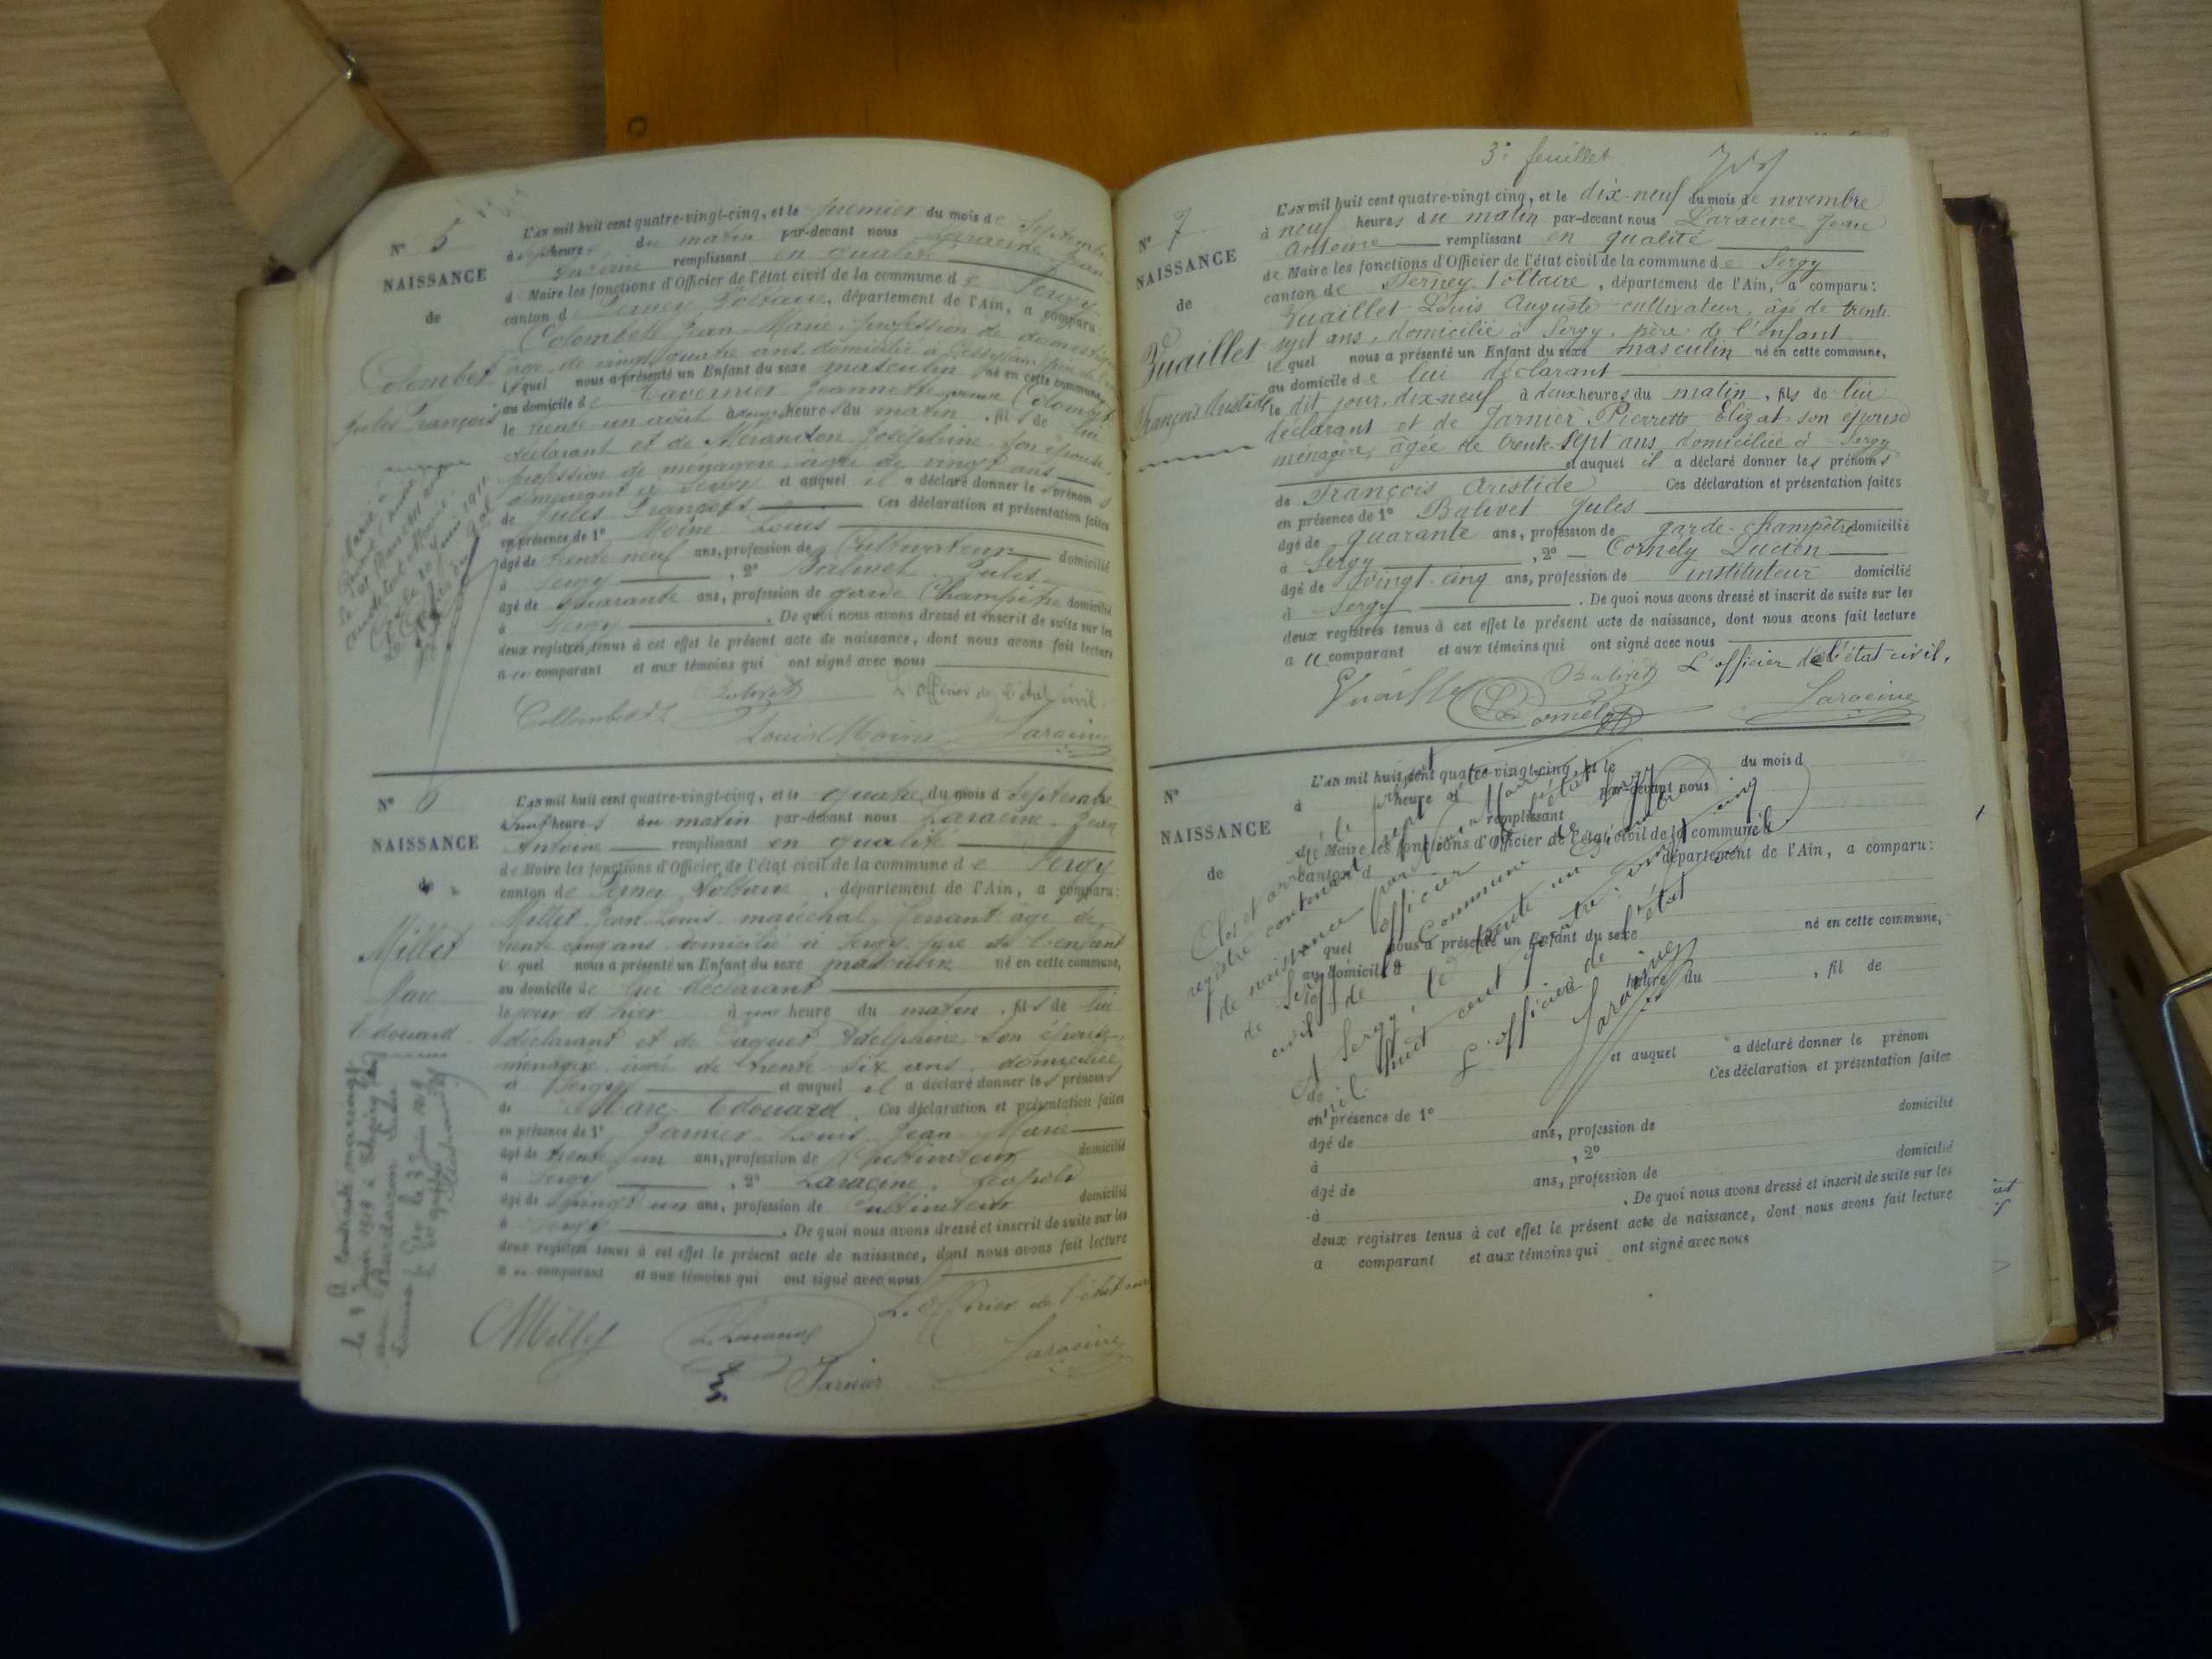 N° 5
NAISSANCE
de
Colombet
Jules François
L'AN mil huit cent quatre-vingt-cinq, et le premier du mois de Septembre
à heures du matin par-devant nous Laracine Jean
Antoine remplissant en qualité
d Maire les fonctions d'Officier de l'état civil de la commune de Sergy
canton de Ferney Voltaire, département de l'Ain, a comparu:
Colombet Jean-Marie, profession de domestique
âgé de vingt quatre ans, domicilié à
lequel nous a présenté un Enfant du sexe masculin né en cette commune,
au domicile de Tavernier Jeannette Colombet
le trente un août à heures du matin, fils de lui
déclarant et de Joséphine son épouse,
profession de ménagère, âgée de vingt ans
demeurant à Sergy et auquel il a déclaré donner les prénoms
de Jules François Ces déclaration et présentation faites
en présence de 1° Moine Louis
âgé de trente neuf ans, profession de Cultivateur domicilié
à Sergy, 2° Balivet Jules
âgé de quarante ans, profession de garde Champêtre domicilié
à Sergy. De quoi nous avons dressé et inscrit de suite sur les
deux registres tenus à cet effet le présent acte de naissance, dont nous avons fait lecture
au comparant et aux témoins qui ont signé avec nous
Balivet L'officier de l'état civil.
Louis Moine Laracine
N° 6
NAISSANCE
de
Millet
Marc
Edouard
L'AN mil huit cent quatre-vingt-cinq, et le quatre du mois d Septembre
à heures du matin par-devant nous Laracine Jean
Antoine remplissant en qualité
de Maire les fonctions d'Officier de l'état civil de la commune de Sergy
canton de Ferney Voltaire, département de l'Ain, a comparu:
Millet Jean Louis, maréchal ferrant âgé de
trente cinq ans domicilié à Sergy, père de l'enfant
lequel nous a présenté un Enfant du sexe masculin né en cette commune,
au domicile de lui déclarant
le jour d'hier à une heure du matin, fils de lui
déclarant et de Paquet Adelphine, son épouse,
ménagère âgée de trente six ans, domiciliée
à Sergy et auquel il a déclaré donner les prénoms
de Marc Edouard. Ces déclaration et présentation faites
en présence de 1° Jarnier Louis Jean Marie
âgé de trente un ans, profession de Cultivateur domicilié
à Sergy, 2° Laracine, Léopold
âgé de vingt un ans, profession de Cultivateur domicilié
à Sergy. De quoi nous avons dressé et inscrit de suite sur les
deux registres tenus à cet effet le présent acte de naissance, dont nous avons fait lecture
au comparant et aux témoins qui ont signé avec nous
L'officier de l'état civil
Millet L. Laracine Laracine
Jarnier
3e feuillet
N° 7
NAISSANCE
de
Vuaillet
François Aristide
L'AN mil huit cent quatre-vingt-cinq, et le dix-neuf du mois de novembre
à neuf heures du matin par-devant nous Laracine Jean
Antoine remplissant en qualité
de Maire les fonctions d'Officier de l'état civil de la commune de Sergy
canton de Ferney Voltaire, département de l'Ain, a comparu:
Vuaillet Louis Auguste cultivateur, âgé de trente
sept ans, domicilié à Sergy, père de l'enfant
lequel nous a présenté un Enfant du sexe masculin né en cette commune,
au domicile de lui déclarant
le dit jour, dix-neuf, à deux heures du matin, fils de lui
déclarant et de Jarnier Pierrette Elizat son épouse
ménagère, âgée de trente-sept ans, domiciliée à Sergy
et auquel il a déclaré donner les prénoms
de François Aristide Ces déclaration et présentation faites
en présence de 1° Balivet Jules
âgé de quarante ans, profession de garde-champêtre domicilié
à Sergy, 2° Cornély Lucien
âgé de vingt-cinq ans, profession de instituteur domicilié
à Sergy. De quoi nous avons dressé et inscrit de suite sur les
deux registres tenus à cet effet le présent acte de naissance, dont nous avons fait lecture
au comparant et aux témoins qui ont signé avec nous
Balivet L'officier de l'état civil,
Vuaillet L. Cornély Laracine
N°
NAISSANCE
de
L'AN mil huit cent quatre-vingt-cinq, et le du mois d
à heure par-devant nous
remplissant
de Maire les fonctions d'Officier de l'état civil de la commune d
canton d département de l'Ain, a comparu:
quel nous a présenté un Enfant du sexe né en cette commune,
au domicile d
le heure du, fil de
et auquel a déclaré donner le prénom
de Ces déclaration et présentation faites
en présence de 1°
âgé de ans, profession de domicilié
à, 2°
âgé de ans, profession de domicilié
à. De quoi nous avons dressé et inscrit de suite sur les
deux registres tenus à cet effet le présent acte de naissance, dont nous avons fait lecture
a comparant et aux témoins qui ont signé avec nous
Clos et arrêté le présent
registre contenant sept actes
de naissance par nous Maire
officier de l'état
civil de la Commune de Sergy
A Sergy, le trente un décembre
mil huit cent quatre-vingt cinq
L'officier de l'état
civil
Laracine